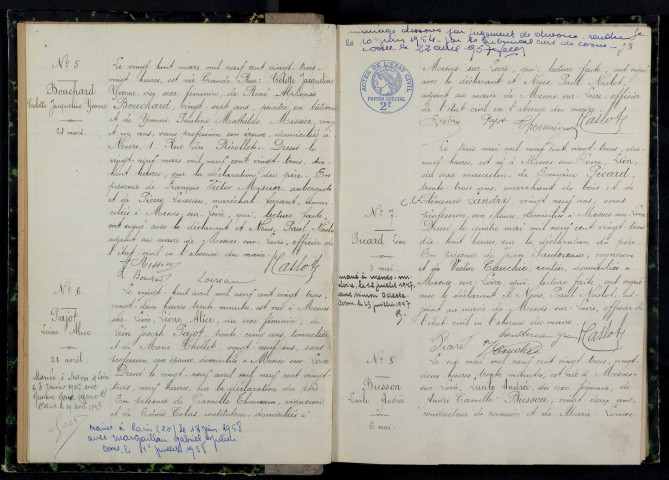 N° 5
Bouchard
Colette Jacqueline Yvonne
28 mars
Le vingt huit mars mil neuf cent vingt trois
vingt heures, est née Grande Rue: Colette Jacqueline
Yvonne, du sexe féminin, de René Alphonse
Bouchard, vingt sept ans, peintre en bâtiment
et de Yvonne Pauline Mathilde Messier, vingt
et un ans, sans profession, son épouse, domiciliés à
Nevers, 1 Rue des Récollets. Dressé le
vingt neuf mars mil neuf cent vingt trois, dix
huit heures, sur la déclaration du père. En
présence de François Victor Messier, aubergiste
et de Pierre Loiseau, maréchal ferrant, domi-
ciliés à Mesves sur Loire, qui, lecture faite,
ont signé avec le déclarant et Nous, Paul Naslot
adjoint au maire de Mesves sur Loire, officier de
l'état civil en l'absence du maire.
Messier
R Bouchard Loiseau Naslot
N° 6
Pajot
Liliane Alice
28 avril
Le vingt huit avril mil neuf cent vingt trois,
vingt deux heures trente minutes est née à Mesves
sur Loire, Alice, du sexe féminin, de
Léon Joseph Pajot, trente cinq ans, tonnelier
et de Marie Thollet, vingt neuf ans, sans
profession, son épouse, domiciliés à Mesves sur Loire.
Dressé le vingt neuf avril mil neuf cent vingt
trois, neuf heures, sur la déclaration du père
En présence de Camille Thoumin, vigneron
et de Edmé Calas, instituteur, domiciliés à
Mariée à
le 3 Janvier 1942 avec
mariée à Paris (20e) le 18 juin 1958
avec Margaillan Gabriel
Cosne, le 1er juillet 1958
mariage dissous par jugement de divorce rendu
le 10 juin 1954 par le tribunal civil de Cosne
Cosne le 22 avril 1957
ACTES DE L'ÉTAT CIVIL
PAPIER SPÉCIAL
2F
Mesves sur Loire, qui, lecture faite, ont signé
avec le déclarant et Nous, Paul Naslot,
adjoint au maire de Mesves sur Loire, officier
de l'état civil en l'absence du maire.
Pajot Thoumin Naslot
N° 7
Picard Léon
3 mai
Le trois mai mil neuf cent vingt trois, dix
neuf heures, est né à Mesves sur Loire, Léon,
du sexe masculin, de Eugène Picard,
trente trois ans, marchand de bois et de
Clémence Landry, vingt neuf ans, sans
profession, son épouse, domiciliés à Mesves sur Loire
Dressé le quatre mai mil neuf cent vingt trois
dix huit heures, sur la déclaration du père.
En présence de Jean, vigneron
et de Victor, rentier, domiciliés à
Mesves sur Loire, qui, lecture faite, ont signé
avec le déclarant et Nous, Paul Naslot, ad-
joint au maire de Mesves sur Loire, officier de
l'état civil en l'absence du maire.
Picard Naslot
marié à Mesves sur
Loire, le 12 juillet 1947
avec Simon Odette
Cosne le 23 juillet 1947
N° 8
Busson
Lucile Andrée
6 mai
Le six mai mil neuf cent vingt trois, vingt
deux heures trente minutes, est née à Mesves
sur Loire, Lucile Andrée, du sexe féminin, de
André Camille Busson, vingt deux ans,
conducteur de camion et de Marie Louise